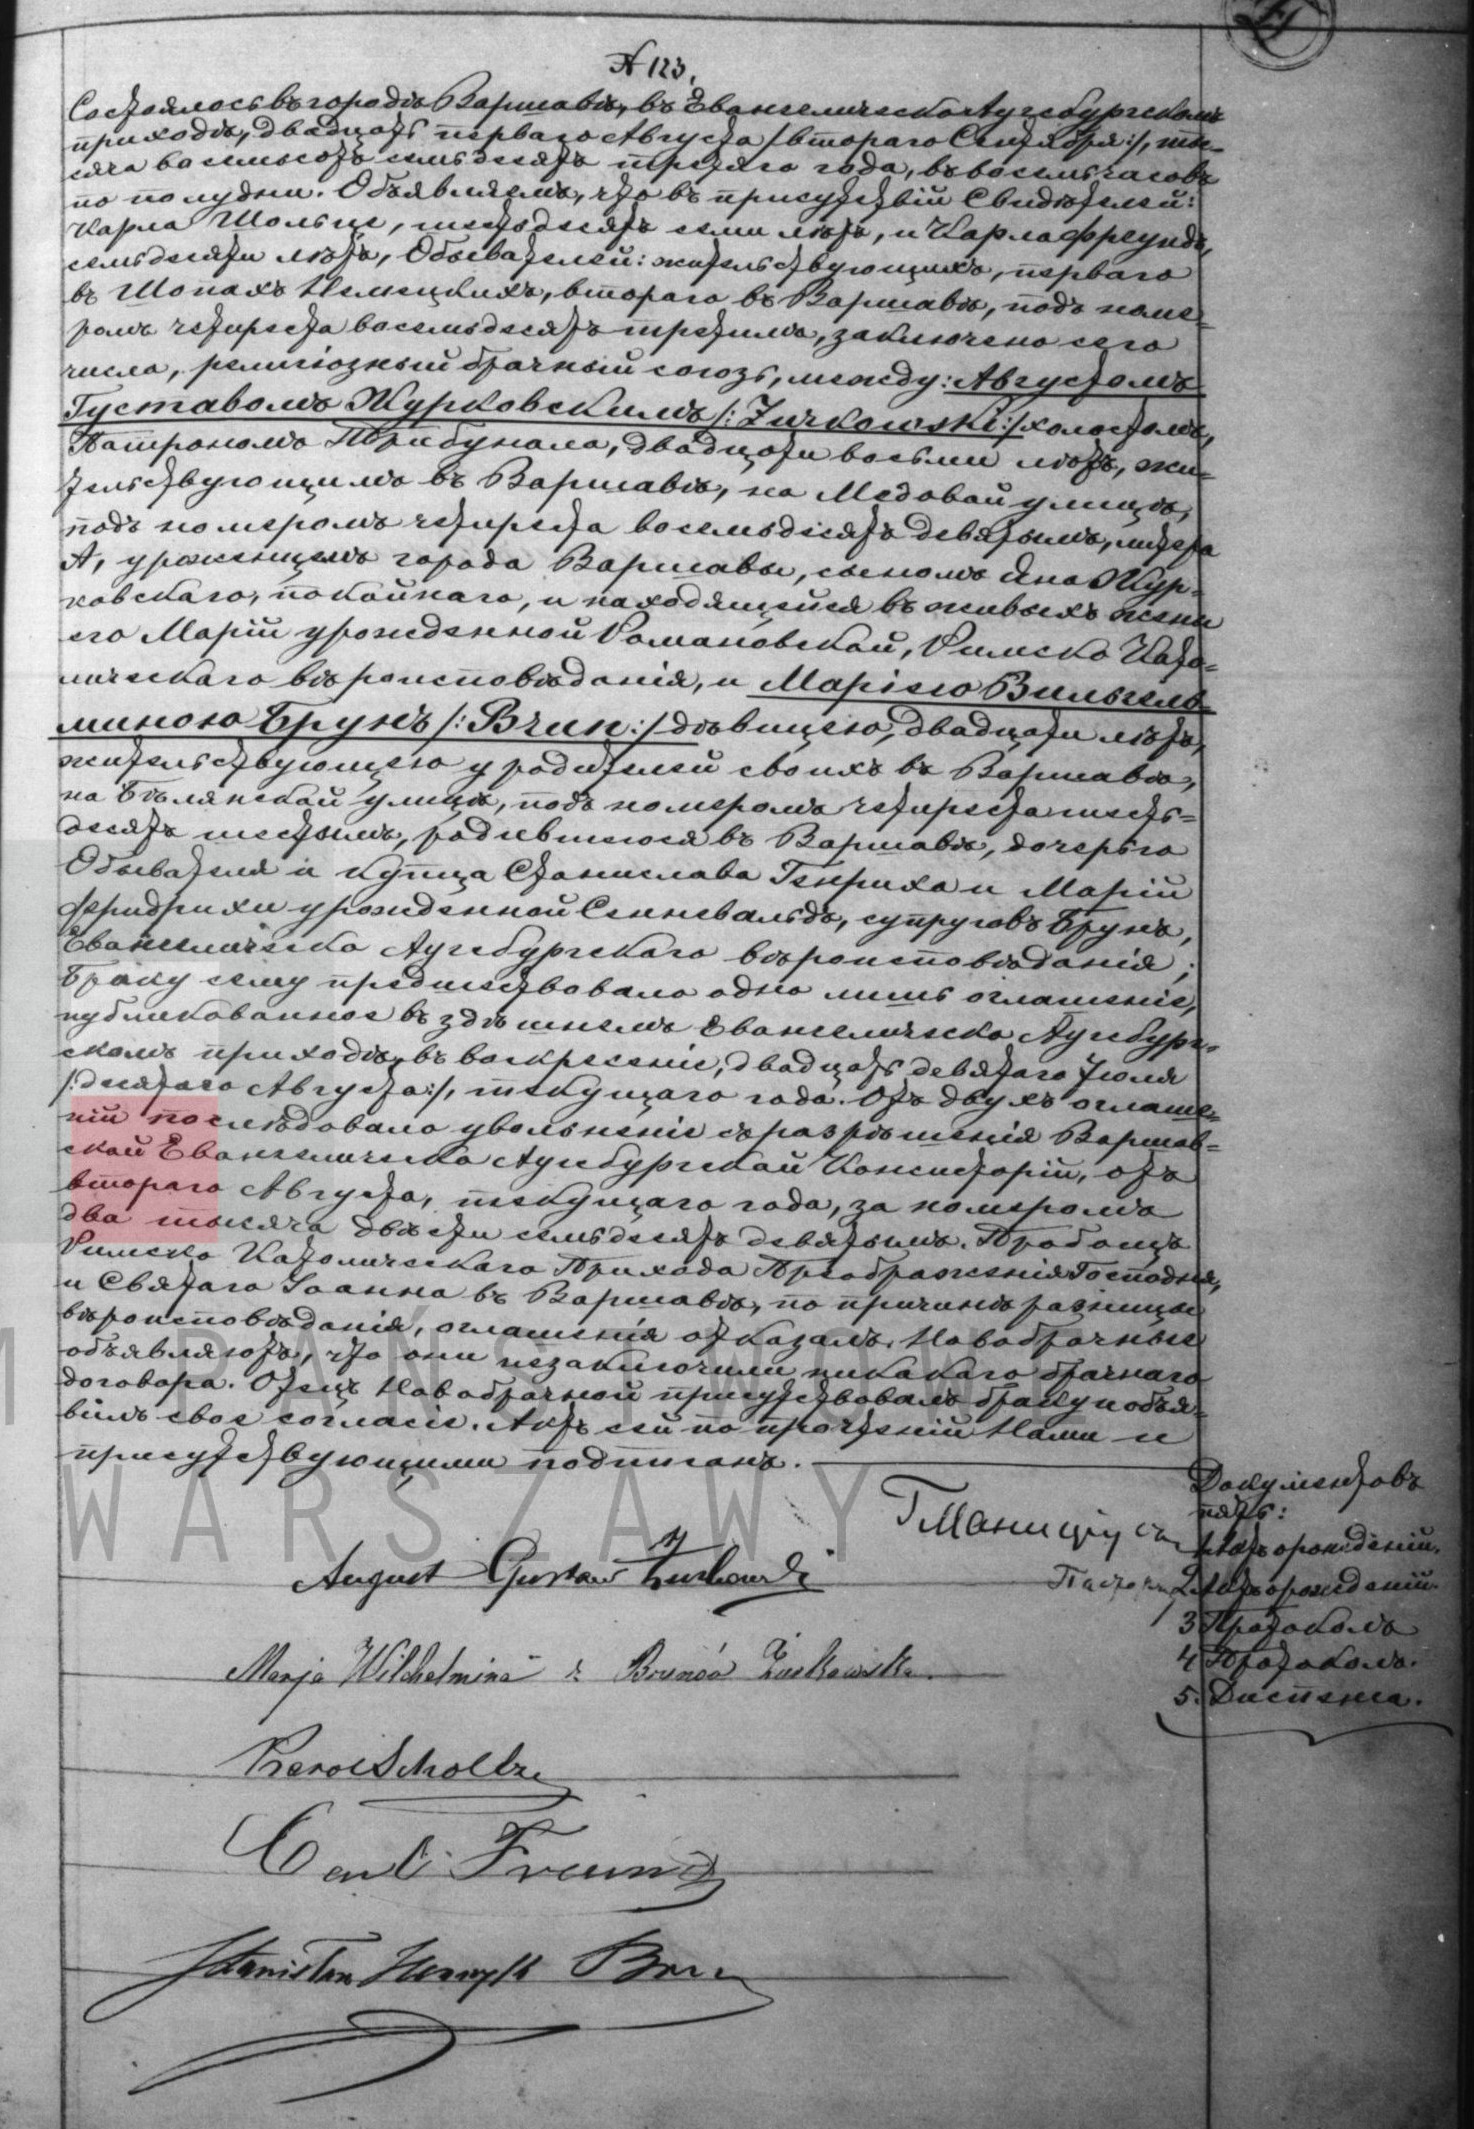 № 123.
Состоялось въ городѣ Варшавѣ, въ Евангелическо Аугсбургскомъ
приходѣ, двадцать перваго Августа /: втораго Сентября :/, ты-
сяча восемьсотъ семьдесятъ третяго года, въ восемь часовъ
по полудни. Объявляемъ, что въ присутствій Свидѣтелей:
Карла Шольце, шестьдесятъ семи лѣтъ, и Карла Фреундъ,
семьдесяти лѣтъ, Обывателей: жительствующихъ, перваго
въ Шопахъ Немецкихъ, втораго въ Варшавѣ, подъ номе-
ромъ четыреста восемьдесятъ третимъ, заключено сего
числа, религіозный брачный союзъ, между: Августомъ
Густавомъ Журковскимъ /: Żurkowski :/ холостымъ,
Патрономъ Трибунала, двадцати восьми лѣтъ, жи-
тельствующимъ въ Варшавѣ, на Медовай улицѣ,
подъ номеромъ четыреста восемьдесятъ девятымъ, литера
А, уроженцемъ города Варшавы, сыномъ Яна Жур-
ковскаго, покойнаго, и находящейся въ живыхъ жены
его Марій урожденной Романовской, Римско Като-
лическаго вѣроисповѣданія, и Маріею Вильгель
миною Брунъ /: Brun :/ дѣвицею, двадцати лѣтъ,
жительствующею у родителей своихъ въ Варшавѣ,
на Бѣлянской улицѣ, подъ номеромъ четыреста шесть-
десятъ шестымъ, родившеюся въ Варшавѣ, дочерью
Обывателя и купца Станислава Генриха и Марій
Фридрихи урожденной Сенневальдъ, супруговъ Брунъ,
Евангелическо Аугсбургскаго вѣроисповѣданія;
Браку сему предшествовало одно лишь оглашеніе,
публикованное въ здѣшнемъ Евангелическо Аугсбург-
скомъ приходѣ, въ воскресеніе, двадцать девятаго Іюля
/: десятаго Августа :/, текущаго года. Отъ двухъ оглаше-
ній послѣдовало увольненіе съ разрѣшенія Варшав-
ской Евангелическо Аугсбургской Консисторій, отъ
втораго Августа, текущаго года, за номеромъ
два тысяча двѣсти семьдесятъ девятымъ. Пробощъ
Римско Католическаго Прихода Преображенія Господня,
и Святаго Іоанна въ Варшавѣ, по причинѣ разницы
вѣроисповѣданія, оглашенія отказалъ. Новобрачные
объявляютъ, что они незаключили никакаго брачнаго
договора. Отецъ Новобрачной присутствовалъ браку и объя-
вилъ свое согласіе. Актъ сей по прочтеній Нами и
присутствующими подписанъ.
Документовъ
пять:
1 Актъ орожденій.
2 Актъ орожденій.
3 Протоколъ
4 Протоколъ.
5. Диспенса.
August Gustaw Żurkowski
Marja Wilchelmina z Brunów Żurkowska.
Karol Scholtze
Carl Freund
Stanisław Henryk Brun
PAŃSTWOWE
WARSZAWY